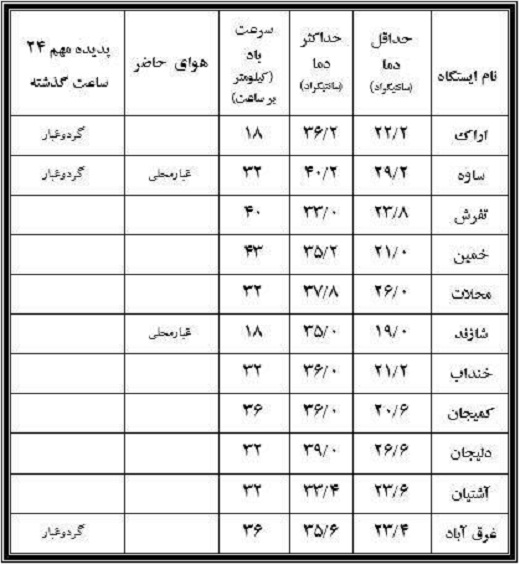 نام ایستگاه حداقل دما (سانتیگراد) حداکثر دما (سانتیگراد) سرعت باد (کیلومتر بر ساعت) هوای حاضر پدیده مهم ۲۴ ساعت گذشته
اراک ۲۲/۲ ۳۶/۲ ۱۸ گردوغبار
ساوه ۲۹/۲ ۴۰/۲ ۳۲ غبارمحلی گردوغبار
تفرش ۲۳/۸ ۳۳/۰ ۴۰
خمین ۲۱/۰ ۳۵/۲ ۴۳
محلات ۲۶/۰ ۳۷/۸ ۳۲
شازند ۱۹/۰ ۳۵/۰ ۱۸ غبارمحلی
خنداب ۲۱/۲ ۳۶/۰ ۳۲
کمیجان ۲۰/۶ ۳۶/۰ ۳۶
دلیجان ۲۶/۶ ۳۹/۰ ۳۲
آشتیان ۲۳/۶ ۳۳/۴ ۳۲
غرق آباد ۲۳/۴ ۳۵/۶ ۳۶ گردوغبار